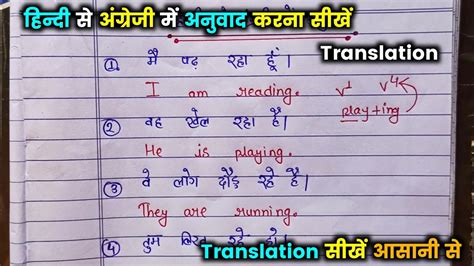 हिन्दी से अंग्रेजी में अनुवाद करना सीखें
Translation
① मै पढ़ रहा हूं।
I am reading.
v¹ v⁴
play+ing
② वह खेल रहा है।
He is playing.
③ वे लोग दौड़ रहे है।
They are running.
④ तुम
Translation सीखें आसानी से